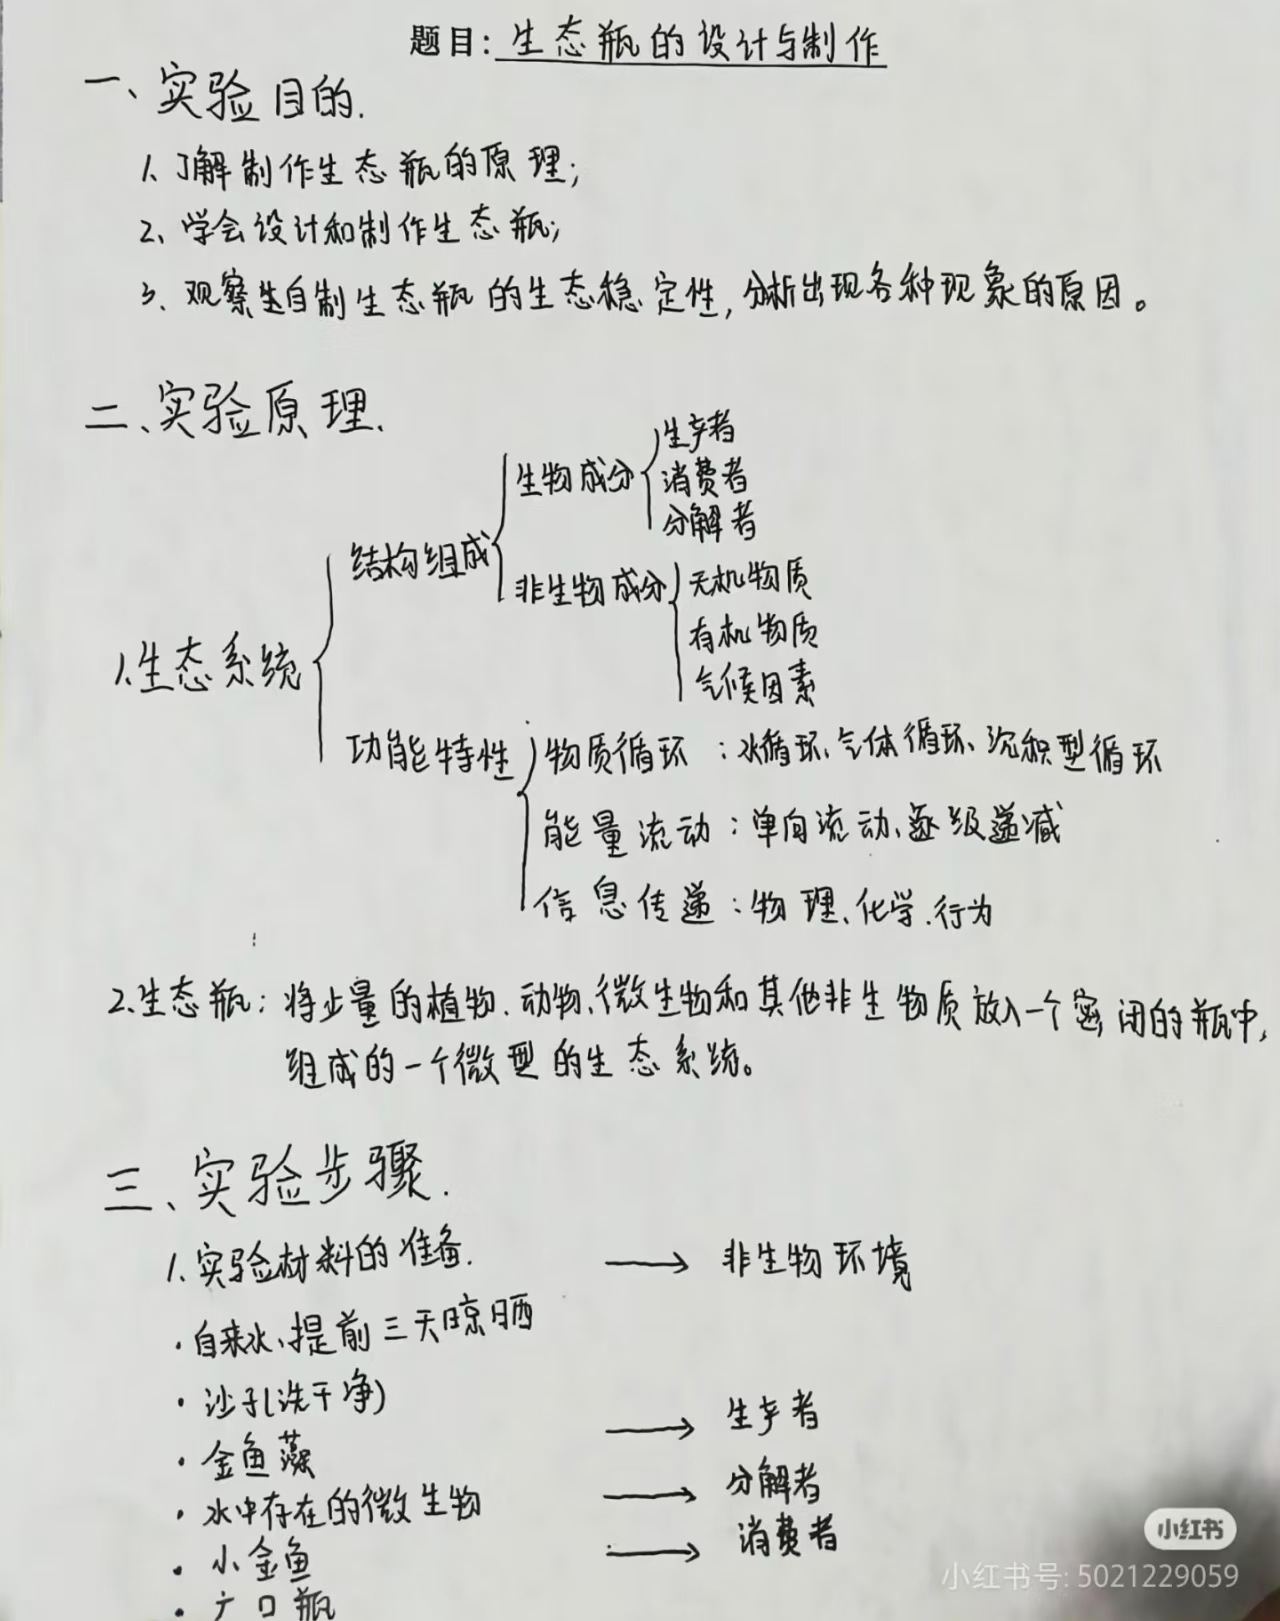 题目: 生态瓶的设计与制作
一、实验目的.
1、了解制作生态瓶的原理;
2、学会设计和制作生态瓶;
3、观察生自制生态瓶的生态稳定性,分析出现各种现象的原因。
二、实验原理.
生产者
生物成分
消费者
分解者
结构组成
非生物成分
无机物质
有机物质
气候因素
1.生态系统
功能特性
物质循环:水循环、气体循环、沉积型循环
能量流动:单向流动、逐级递减
信息传递:物理、化学.行为
2.生态瓶:将少量的植物.动物、微生物和其他非生物质放入一个密闭的瓶中,
组成的一个微型的生态系统。
三、实验步骤.
1.实验材料的准备. → 非生物环境
·自来水、提前三天晾晒
·沙子(洗干净)
·金鱼藻 → 生产者
·水中存在的微生物 → 分解者
·小金鱼 → 消费者
·广口瓶
小红书
小红书号: 5021229059